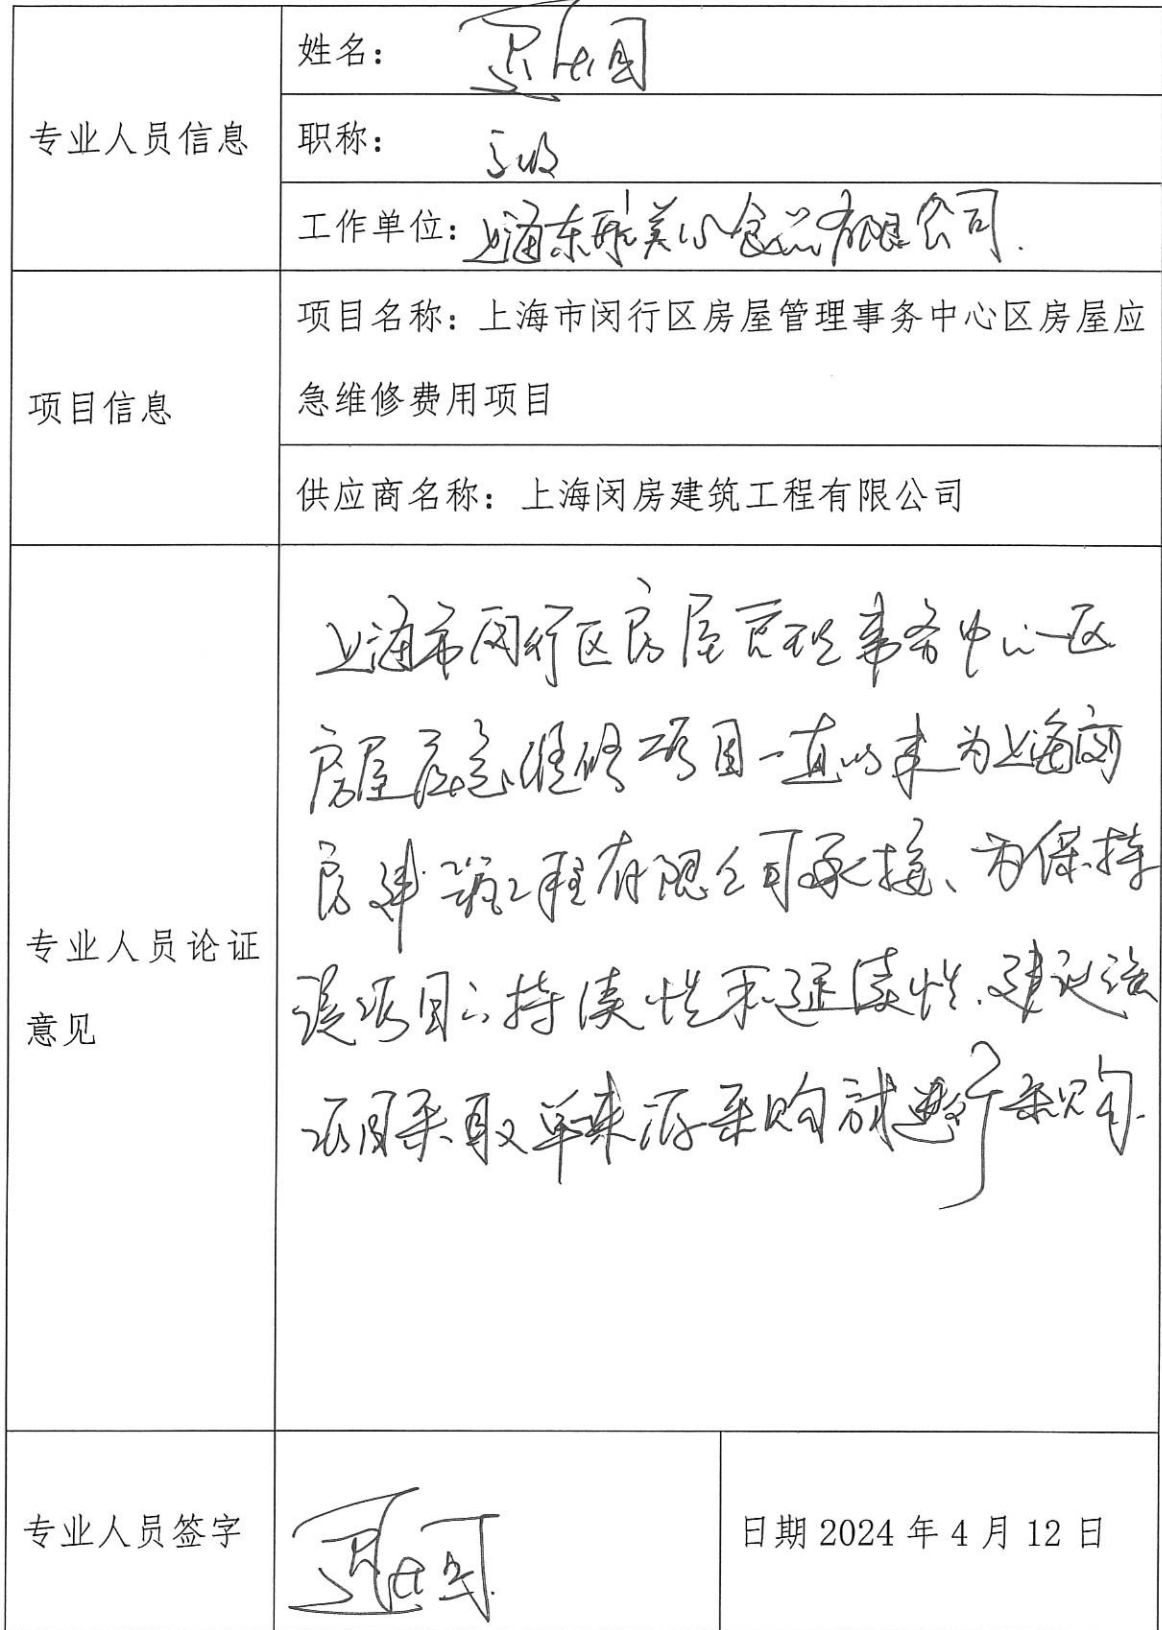 专业人员信息
姓名：
职称：高级
工作单位：上海东 食品有限公司.
项目信息
项目名称：上海市闵行区房屋管理事务中心区房屋应
急维修费用项目
供应商名称：上海闵房建筑工程有限公司
专业人员论证
意见
上海市闵行区房屋管理事务中心区
房屋应急维修项目一直以来为上海闵
房建筑工程有限公司承接、为保持
该项目的持续性和延续性.建议该
项目采取单来源采购 进行采购.
专业人员签字
日期 2024 年 4 月 12 日